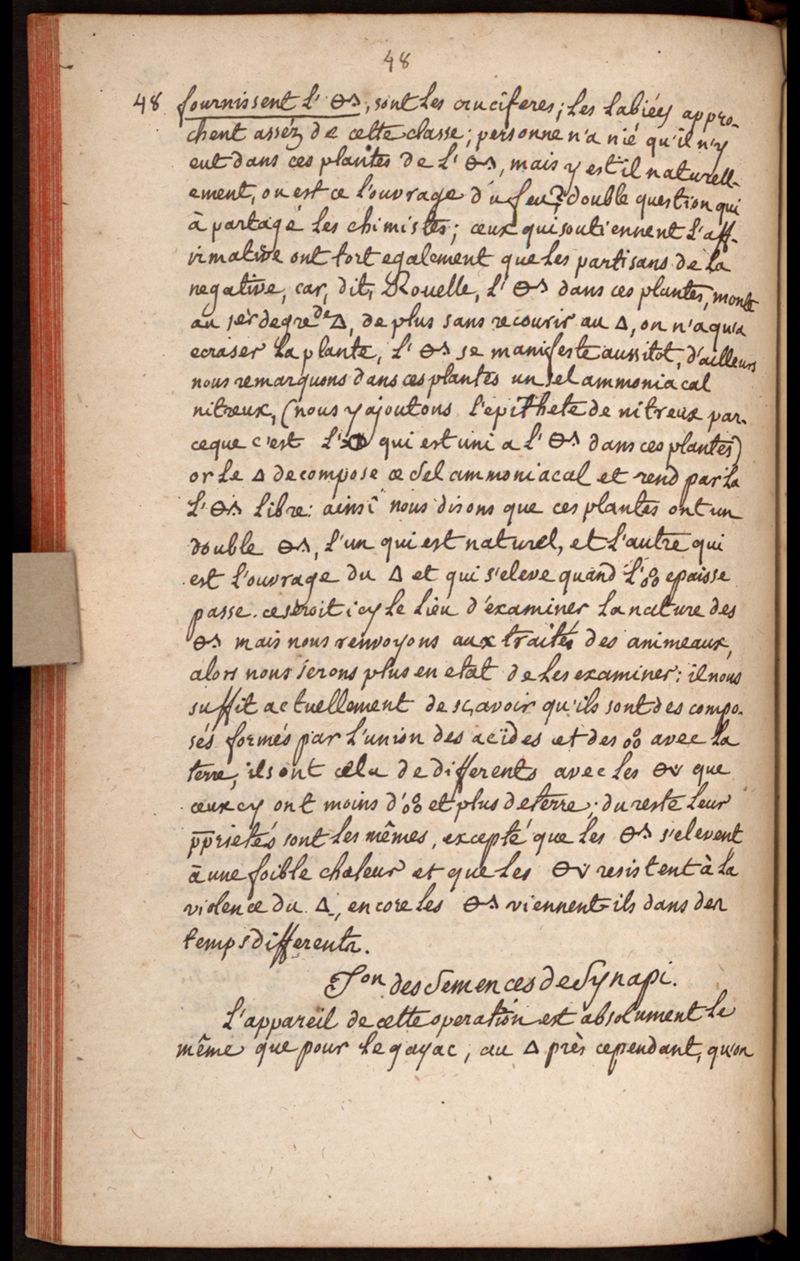 48
48 fournissent l' 🜔^, sont les cruciferes; les labiées appro-
chent asséz de cette classe; personne n'a nié qu'il n'y
eut dans ces plantes de l' 🜔^, mais y est il naturell-
ement, ou est ce l'ouvrage d'u feu? double question qui
à partagé les chimistes; ceux qui soutiennent l'aff-
irmative ont tort egalement que les partisans de la
negative, car, dit, Rouelle, l' 🜔^ dans ces plantes, monte
au 1er degre de 🜂, de plus sans recourir au 🜂, on n'a qu'a
ecraser la plante, l' 🜔^ se manifeste aussitot, d'ailleurs
nous remarquons dans ces plantes un sel ammoniacal
nitreux, (nous y ajoutons l'epithete de nitreux par-
ceque c'est l' qui est uni a l' 🜔^ dans ces plantes)
or le 🜂 decompose ce sel ammoniacal et rend par la
l' 🜔^ libre: ainsi nous disons que ces plantes ont un
double 🜔^, l'un qui est naturel, et l'autre qui
est l'ouvrage du 🜂 et qui s'eleve quand l'o°o epaisse
passe. ce seroit icy le lieu d'examiner la nature des
🜔^ mais nous renvoyons aux traités des animeaux,
alors nous serons plus en etat de les examiner: il nous
suffit actuellement de sçavoir qu'ils sont des compo-
sés formés par l'union des acides et des o°o avec la
terre, ils ont cela de differents avec les 🜔v que
ceux cy ont moins d'o°o et plus de terre. du reste leur
pprietés sont les mêmes, excepté que les 🜔^ s'elevent
à une foible chaleur et que les 🜔v resistent à la
violence du 🜂, encore les 🜔^ viennent ils dans des
temps differents.
Ton des Semences de Synapi.
L'appareil de cette operation est absolument le
même que pour le gayac, au 🜂 près cependant, qu'on